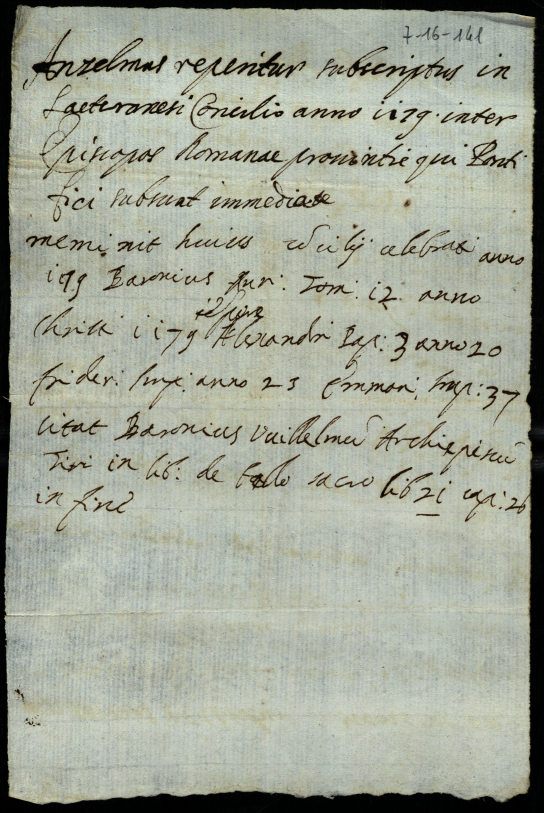 7-16-141
Anzelmus reperitur subscriptus in
Laeteranesi Concilio anno 1179. inter
Episcopos Romanae provintie qui Ponti
fici subsunt immediate
meminit huius concilij celebrati anno
179 Baronius Tom: 12 anno
Christi 1179 tempore Alexandri Pap: 3 anno 20
frider: Imp: anno 25 Emman: Imp: 37
citat Baronius Vuillelmũ Archiepiscũ
Tiri in lib: de bello sacro lib 21 cap: 26
in fine